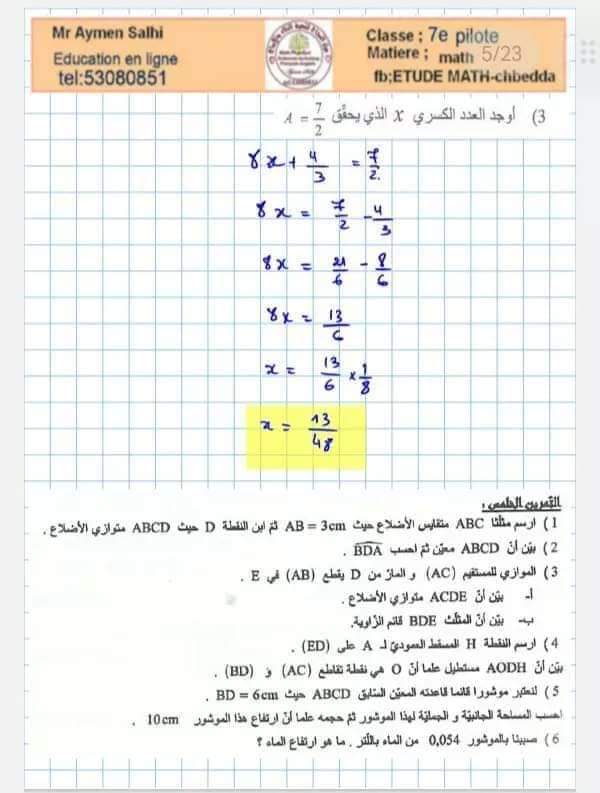 Mr Aymen Salhi
Education en ligne
tel:53080851
Classe ; 7e pilote
Matiere ; math 5/23
fb:ETUDE MATH-chbedda
3) أوجد العدد الكسري x الذي يحقّق A = 7/2
8x + 4/3 = 7/2
8x = 7/2 - 4/3
8x = 21/6 - 8/6
8x = 13/6
x = 13/6 × 1/8
x = 13/48
التمرين الخامس :
1) ارسم مثلّثا ABC متقايس الأضلاع حيث AB = 3cm ثم ابن النقطة D حيث ABCD متوازي الأضلاع .
2) بيّن أنّ ABCD معيّن ثم احسب BDA .
3) الموازي للمستقيم (AC) و المارّ من D يقطع (AB) في E .
أ- بيّن أنّ ACDE متوازي الأضلاع .
ب- بيّن أنّ المثلّث BDE قائم الزّاوية.
4) ارسم النقطة H المسقط العموديّ لـ A على (ED) .
بيّن أنّ AODH مستطيل علما أنّ O هي نقطة تقاطع (AC) و (BD) .
5) لنعتبر موشورا قائما قاعدته المعيّن السّابق ABCD حيث BD = 6cm .
احسب المساحة الجانبيّة و الجمليّة لهذا الموشور ثم حجمه علما أنّ ارتفاع هذا الموشور 10cm .
6) صببنا بالموشور 0,054 من الماء باللّتر . ما هو ارتفاع الماء ؟